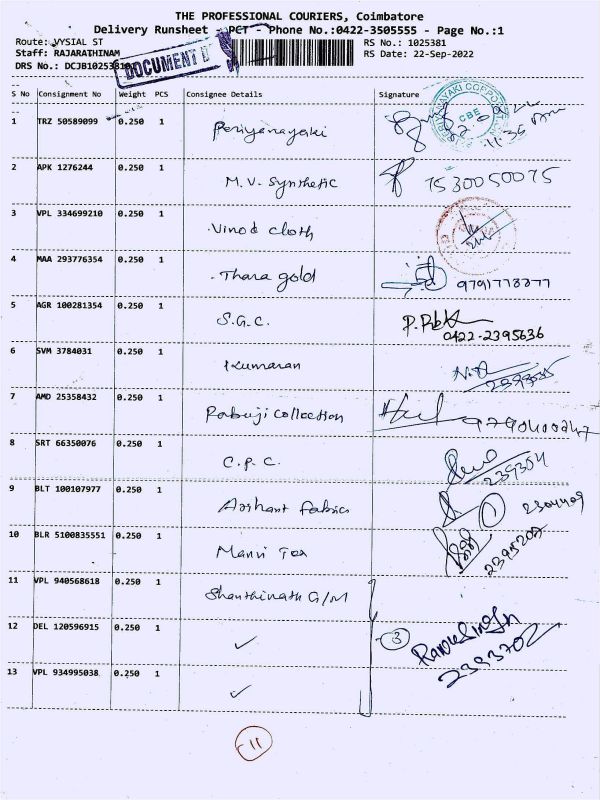 THE PROFESSIONAL COURIERS, Coimbatore
Delivery Runsheet - PCT - Phone No.:0422-3505555 - Page No.:1
Route: VYSIAL ST RS No.: 1025381
Staff: RAJARATHINAM RS Date: 22-Sep-2022
DRS No.: DCJB1025381
DOCUMENT
S No Consignment No Weight PCS Consignee Details Signature
1 TRZ 50589099 0.250 1 Periyanayaki 11.35 Am
CBE
2 APK 1276244 0.250 1 M.V. Synthetic 7530050075
3 VPL 334699210 0.250 1 Vinod cloth
4 MAA 293776354 0.250 1 Thara gold 9791778877
5 AGR 100281354 0.250 1 S.G.C.
0422-2395636
6 SVM 3784031 0.250 1 Kumaran
7 AMD 25358432 0.250 1 Pabuji Collection
8 SRT 66350076 0.250 1 C.P.C. 239304
9 BLT 100107977 0.250 1 Arihant fabrics 1 2304409
10 BLR 5100835551 0.250 1 2395207
11 VPL 940568618 0.250 1 Shanthinath G/M
12 DEL 120596915 0.250 1 ✓ 3
2393702
13 VPL 934995038 0.250 1 ✓
11